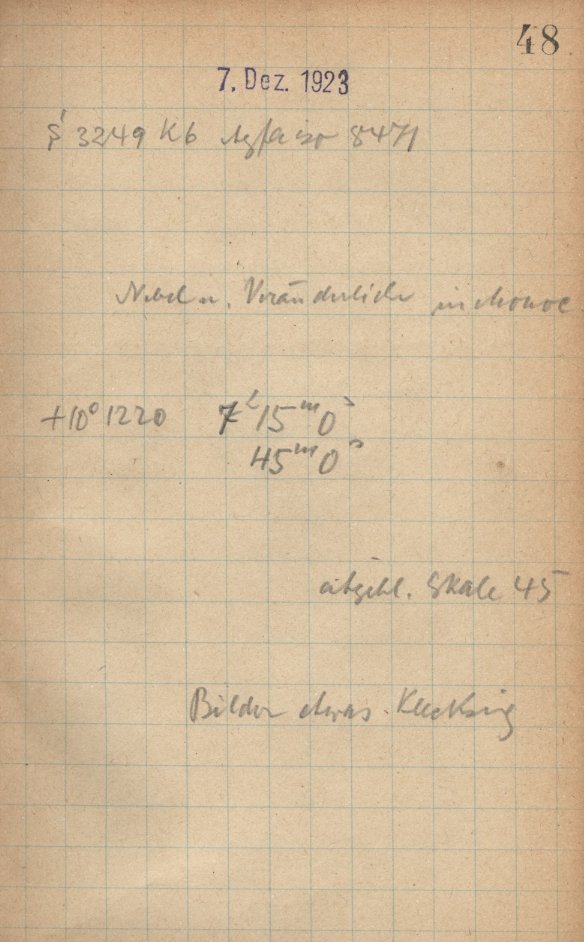 48
7. Dez. 1923
S 3249 Kb Agfa iso 8471
Nebel u. Veränderliche in Monoc
+10° 1220 7ʰ 15ᵐ 0ˢ
45ᵐ 0ˢ
abgebl. Skale 45
Bilder etwas klecksig